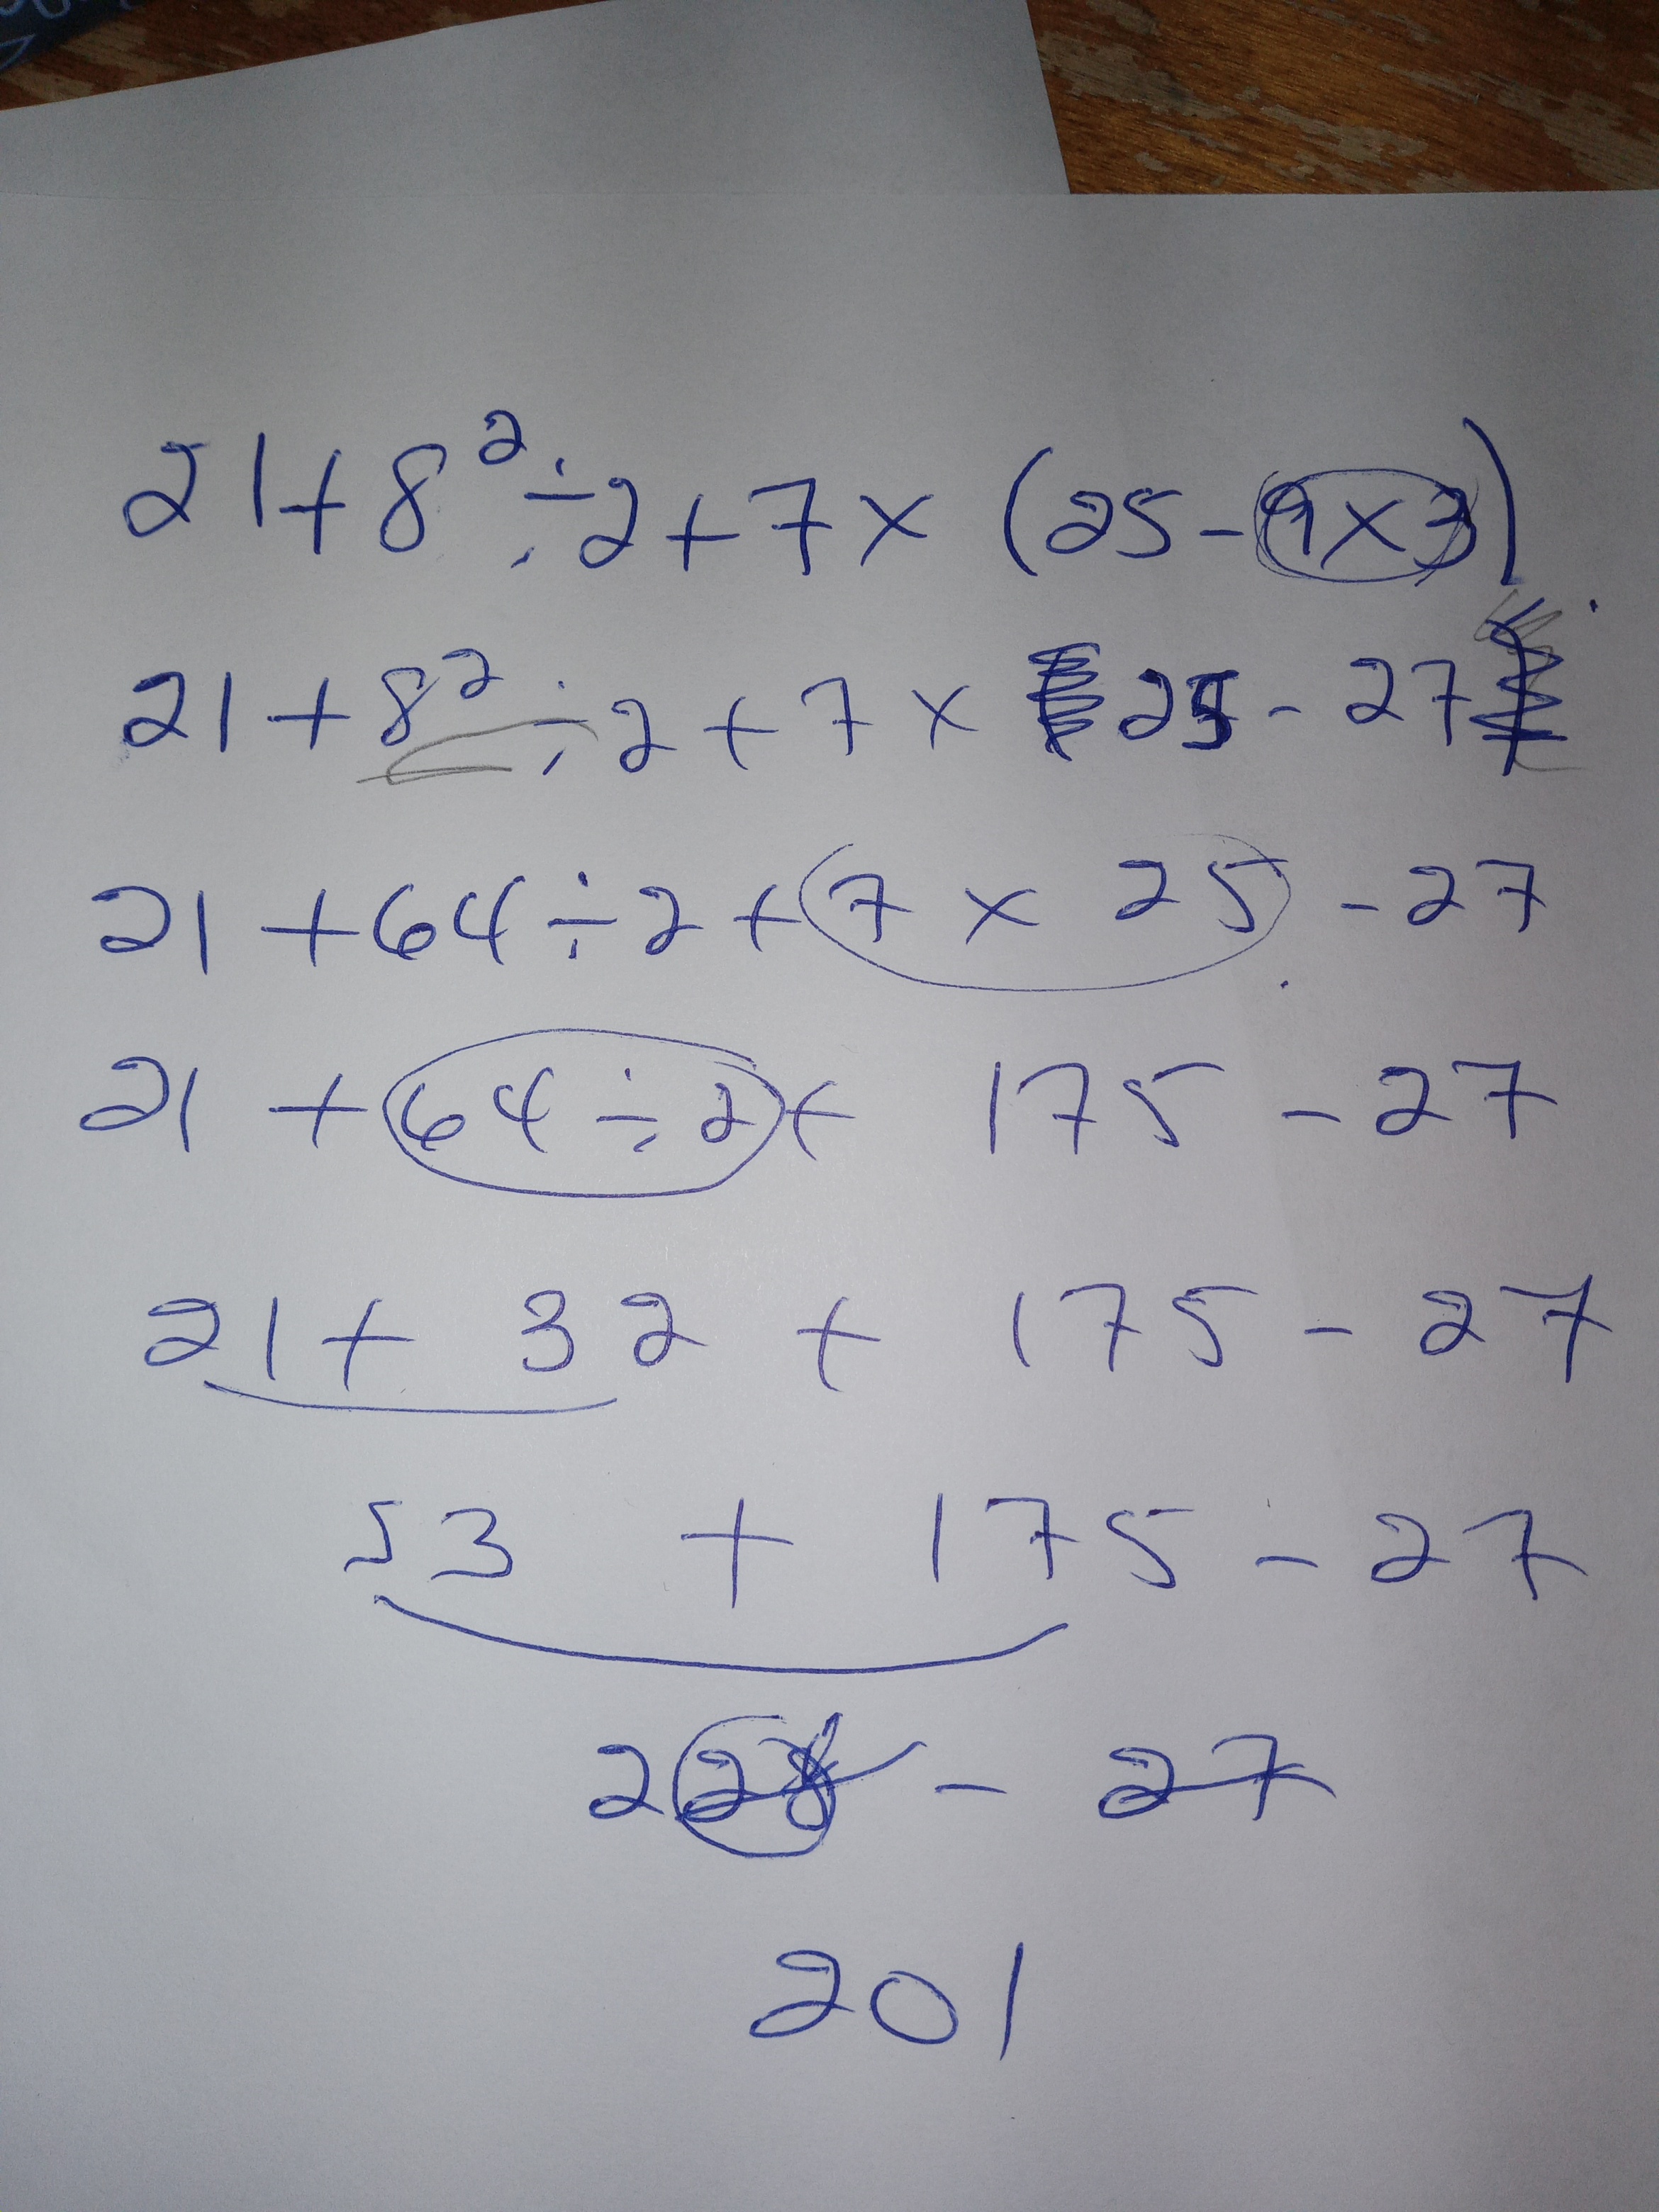 21+8²÷2+7×(25-9×3)
21+8²÷2+7×25-27
21+64÷2+7×25-27
21+64÷2+175-27
21+32+175-27
53+175-27
228-27
201